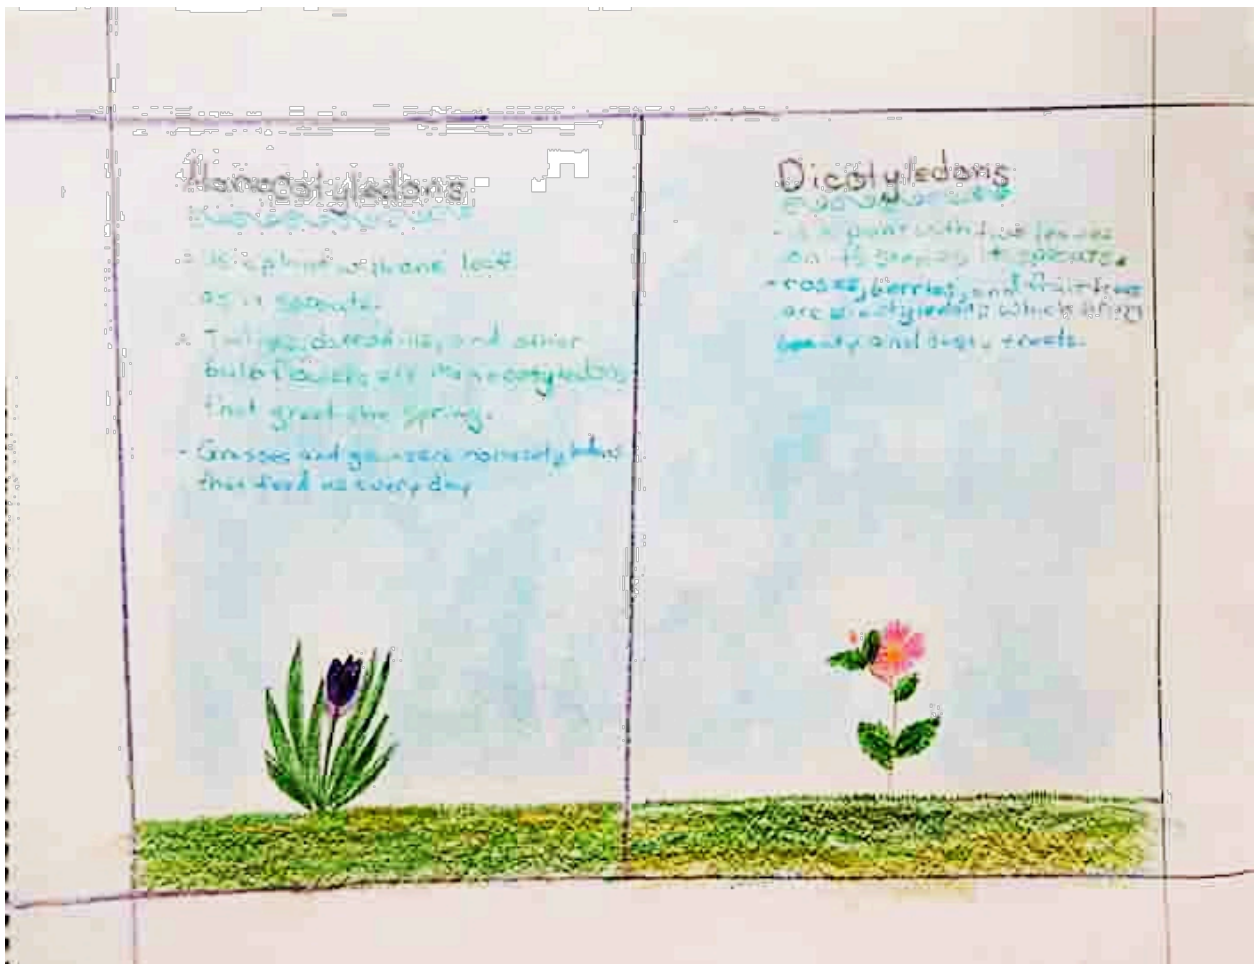 Monocotyledons
- is a plant with one leaf
as it sprouts.
- Tulips, daffodils, and other
bulb flowers are monocotyledons
that greet the spring.
- Grasses and grains are monocotyledons
that feed us every day
Dicotyledons
- is a plant with two leaves
on its stem as it sprouts.
- roses, berries, and fruit trees
are dicotyledons which bring
beauty and tasty treats.